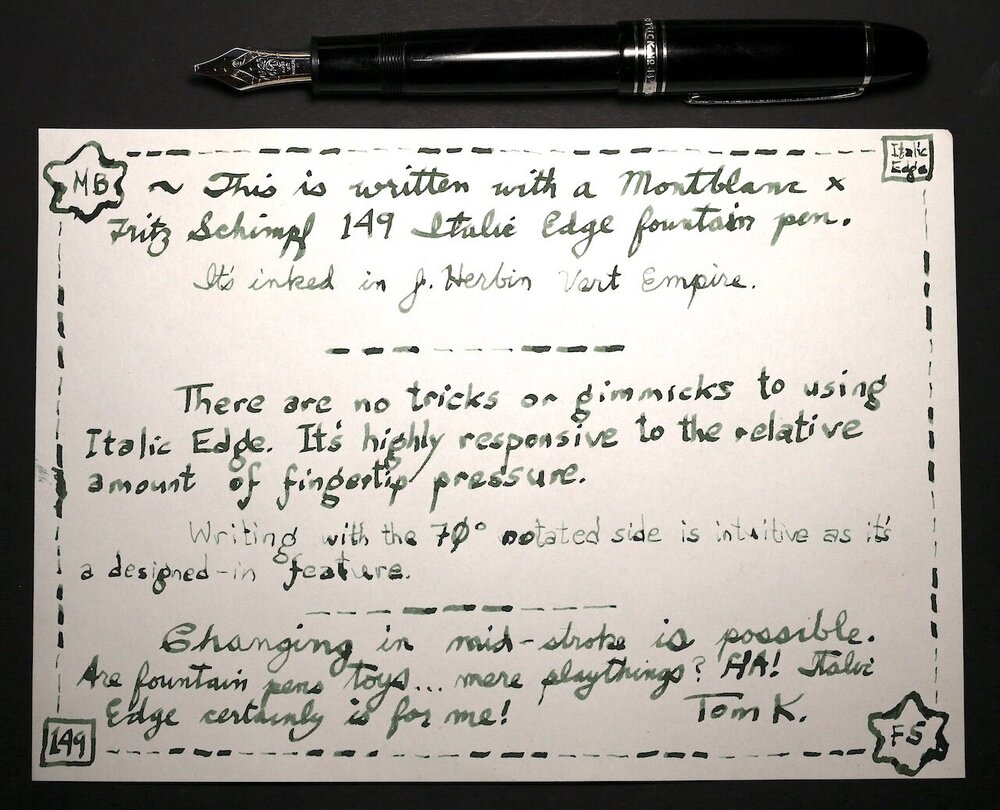 MB
Italic
Edge
~ This is written with a Montblanc x
Fritz Schimpf 149 Italic Edge fountain pen.
It's inked in J. Herbin Vert Empire.
There are no tricks or gimmicks to using
Italic Edge. It's highly responsive to the relative
amount of fingertip pressure.
Writing with the 70° rotated side is intuitive as it's
a designed-in feature.
Changing in mid-stroke is possible.
Are fountain pens toys... mere playthings? HA! Italic
Edge certainly is for me! Tom K.
149
FS